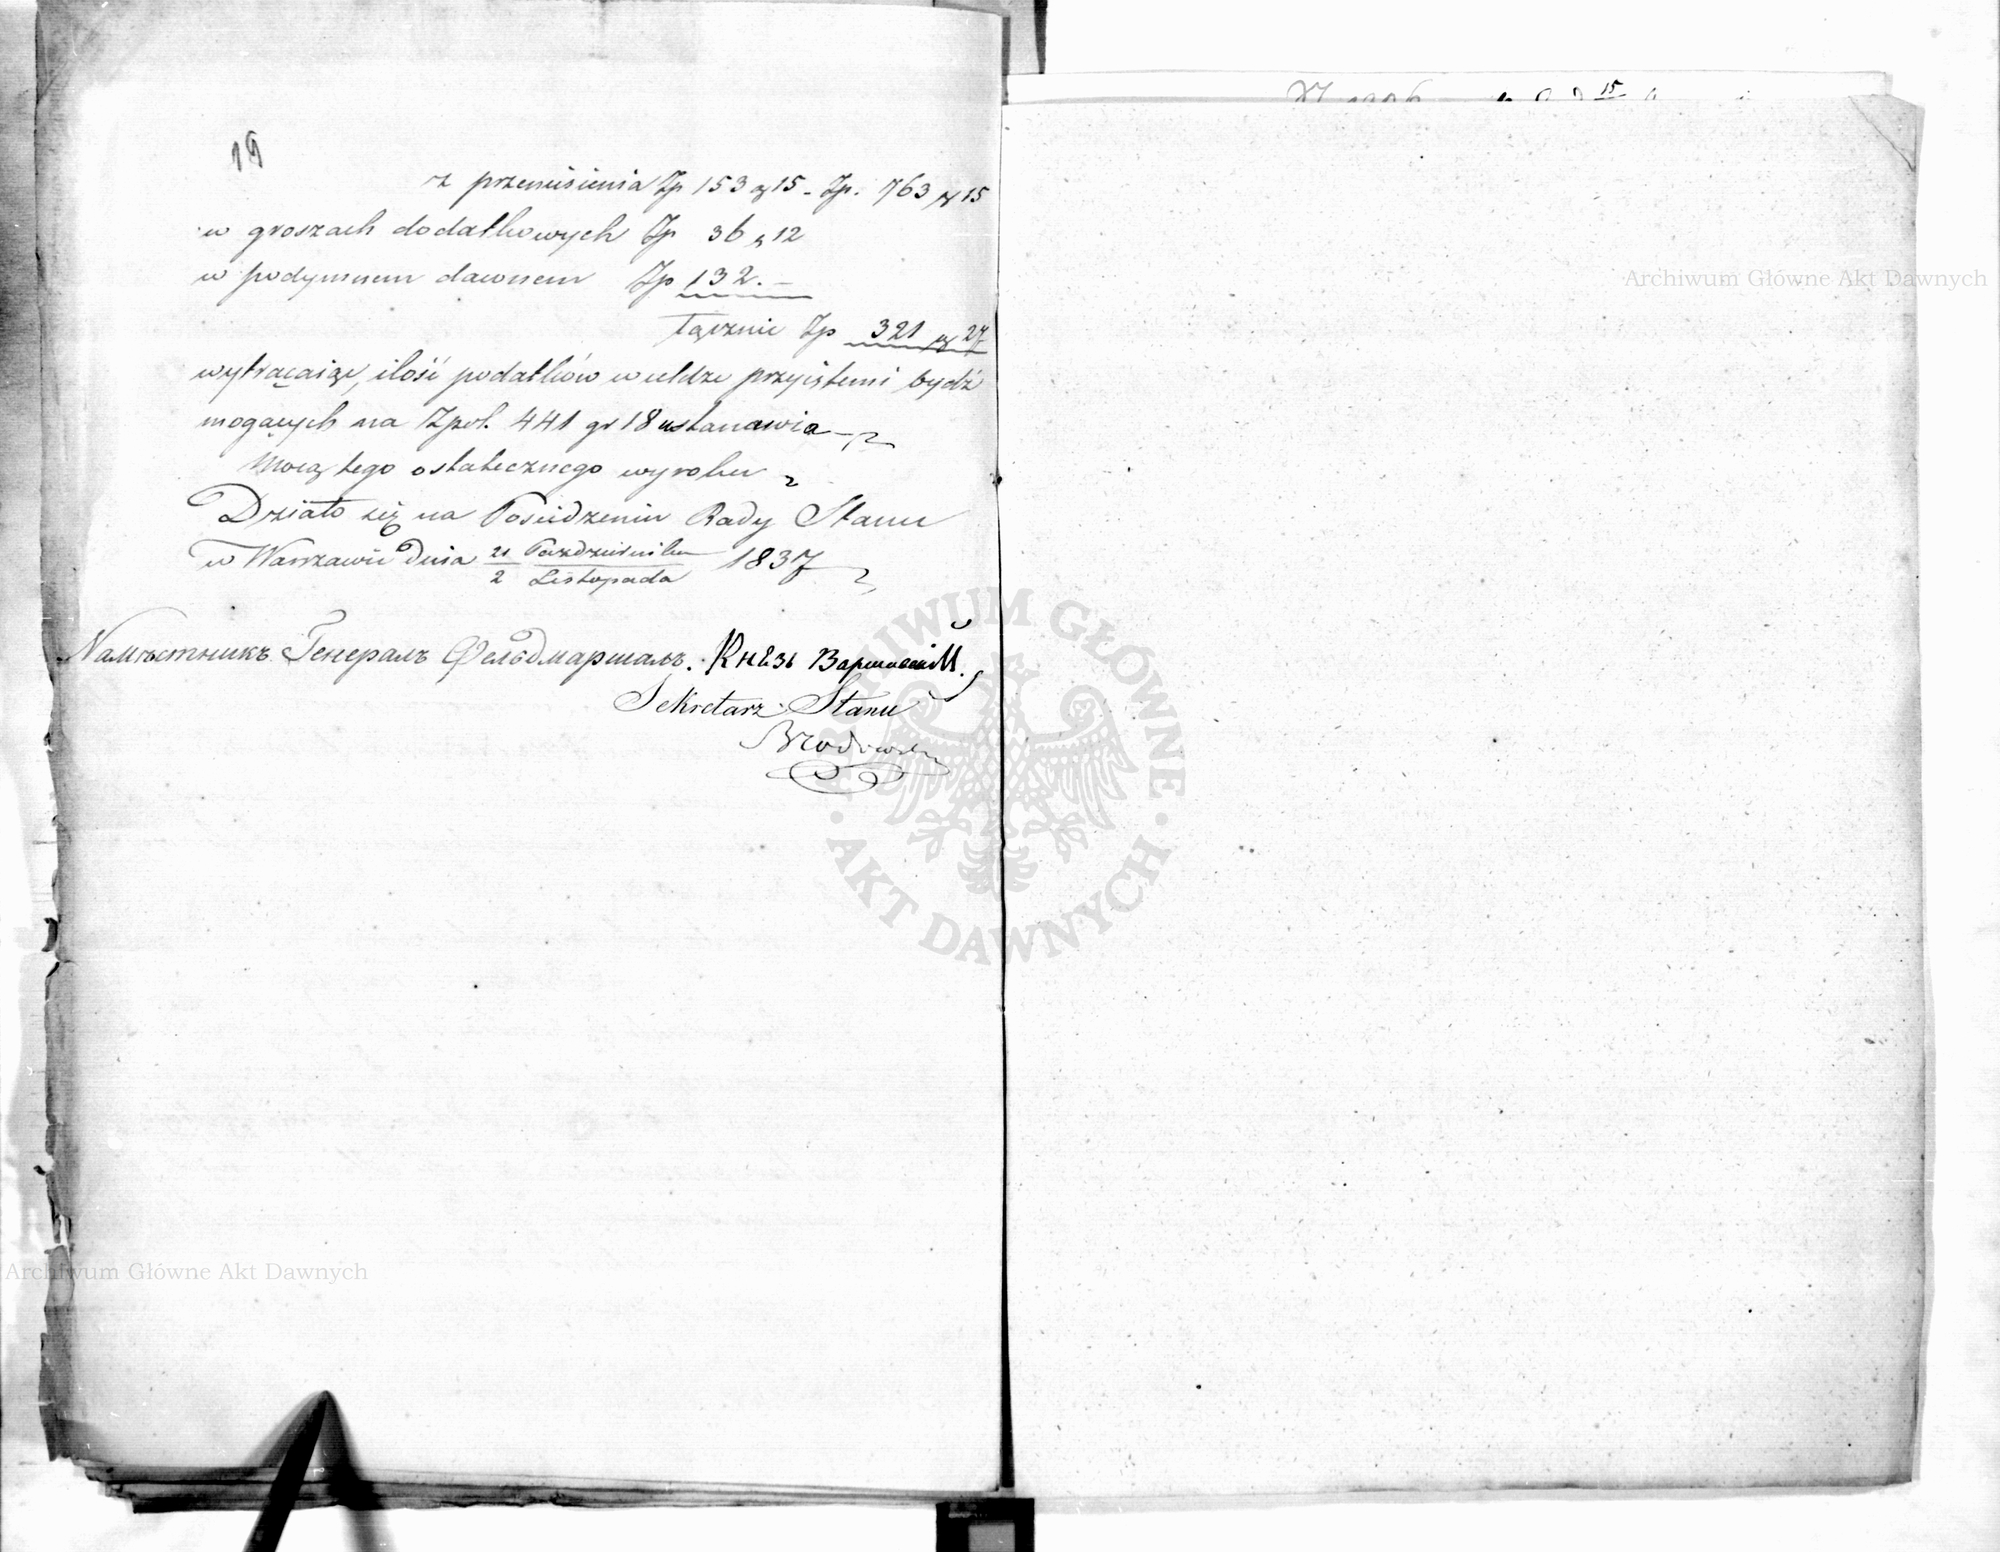 19
z przeniesienia Zp 153 gr 15 - Zp. 763 gr 15
w groszach dodatkowych Zp 36 „ 12
w podymnem dawnem Zp 132. -
łącznie Zp 321 gr 27
wytrącaiąc, ilość podatków w ciągu przyiętemi bydź
mogących na Zpol. 441 gr 18 ustanawia
Mocą tego ostatecznego wyroku
Działo się na Posiedzeniu Rady Stanu
w Warszawie Dnia 21 Października / 2 Listopada 1837
Намѣстникъ Генералъ Фельдмаршалъ. Князь Варшавскій.
Sekretarz Stanu
Brodowski
15
Archiwum Główne Akt Dawnych
ARCHIWUM GŁÓWNE
AKT DAWNYCH
Archiwum Główne Akt Dawnych